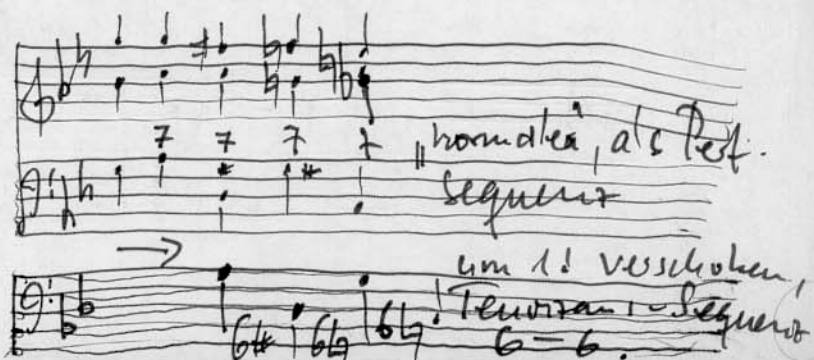 7 7 7 7 „normale", als Perf.
Sequenz
um 1! verschoben,
! Tenorzans-Sequenz
6# 6♮ 6♮ 6 – 6.